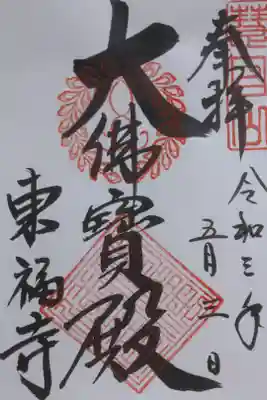 慧日山
奉拝
令和三年
五月三日
大佛寶殿
東福寺